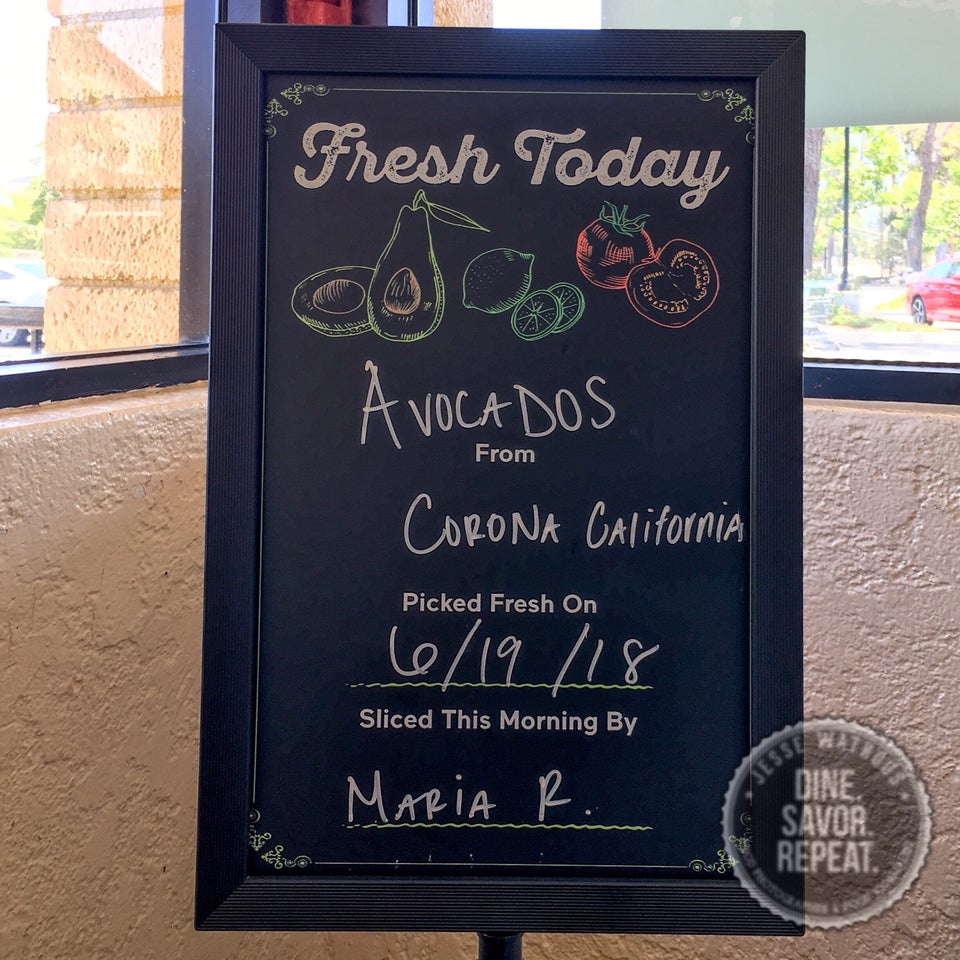 Fresh Today
AVOCADOS
From
CORONA California
Picked Fresh On
6/19/18
Sliced This Morning By
MARIA R.
DINE.
SAVOR.
REPEAT.